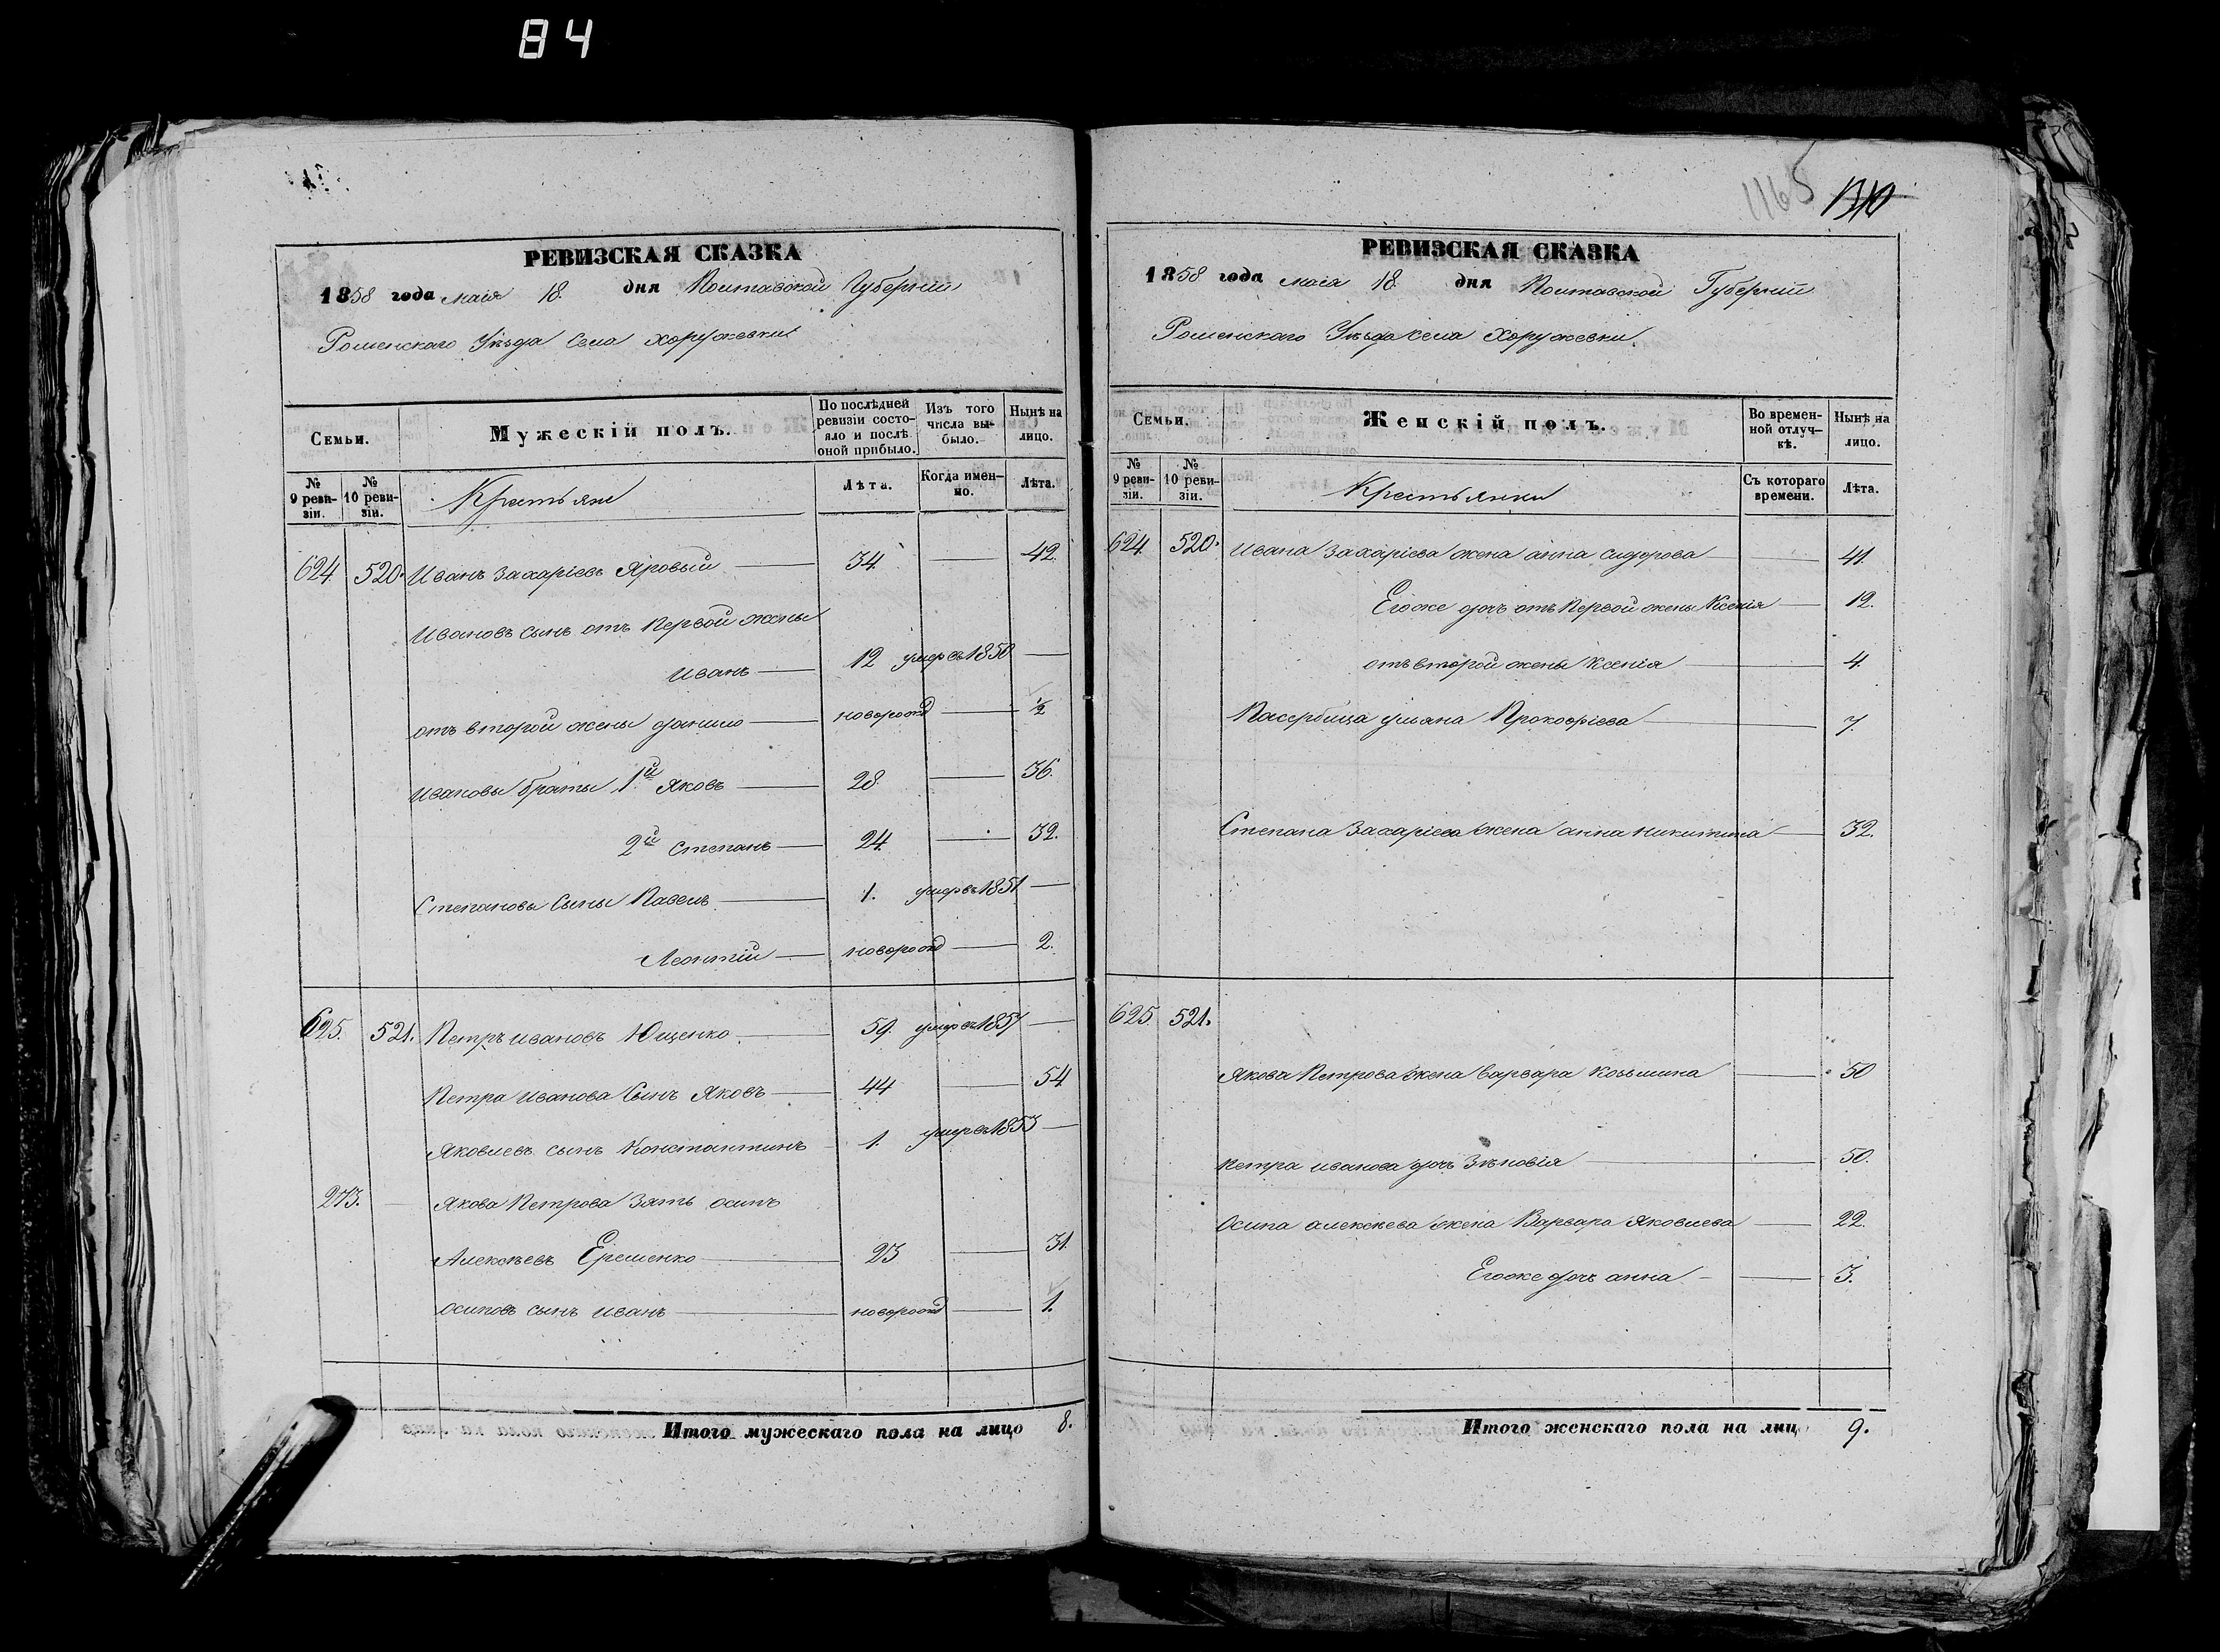 84
РЕВИЗСКАЯ СКАЗКА
1858 года маія 18. дня Полтавской Губерніи
Роменскаго Уѣзда села Хоружевки
Семьи.
Мужескій полъ.
По послѣдней ревизіи состояло и послѣ оной прибыло.
Изъ того числа выбыло.
Нынѣ на лицо.
№ 9 ревизіи.
№ 10 ревизіи.
Крестьяне
Лѣта.
Когда именно.
Лѣта.
624. 520. Иванъ Захаріевъ Яровый 34. 42.
Ивановъ сынъ отъ первой жены
Иванъ 12 умеръ 1850
отъ второй жены Данило новорожд ½
Ивановы браты 1й Яковъ 28. 36.
2й Степанъ 24. 32.
Степановы сыны Павелъ 1. умеръ 1851
Леонтій новорожд 2.
625. 521. Петръ Ивановъ Ющенко 59. умеръ 1857
Петра Иванова сынъ Яковъ 44 54
Яковлевъ сынъ Константинъ 1. умеръ 1853
273. Якова Петрова зять Осипъ
Алексѣевъ Еременко 23 31.
Осиповъ сынъ Иванъ новорожд 1.
Итого мужескаго пола на лицо 8.
1165 1310
РЕВИЗСКАЯ СКАЗКА
1858 года маія 18. дня Полтавской Губерніи
Роменскаго Уѣзда села Хоружевки.
Семьи.
Женскій полъ.
Во временной отлучкѣ.
Нынѣ на лицо.
№ 9 ревизіи.
№ 10 ревизіи.
Крестьянки
Съ котораго времени.
Лѣта.
624 520. Ивана Захаріева жена Анна Сидорова 41.
Егоже дочь отъ первой жены Ксенія 12.
отъ второй жены Ксенія 4.
Пасербица Ульяна Прокофіева 7.
Степана Захаріева жена Анна Никитина 32.
625. 521.
Якова Петрова жена Варвара Козьмина 50
Петра Иванова дочь Зѣновія 50.
Осипа Алексѣева жена Варвара Яковлева 22.
Егоже дочь Анна 3.
Итого женскаго пола на лиц 9.